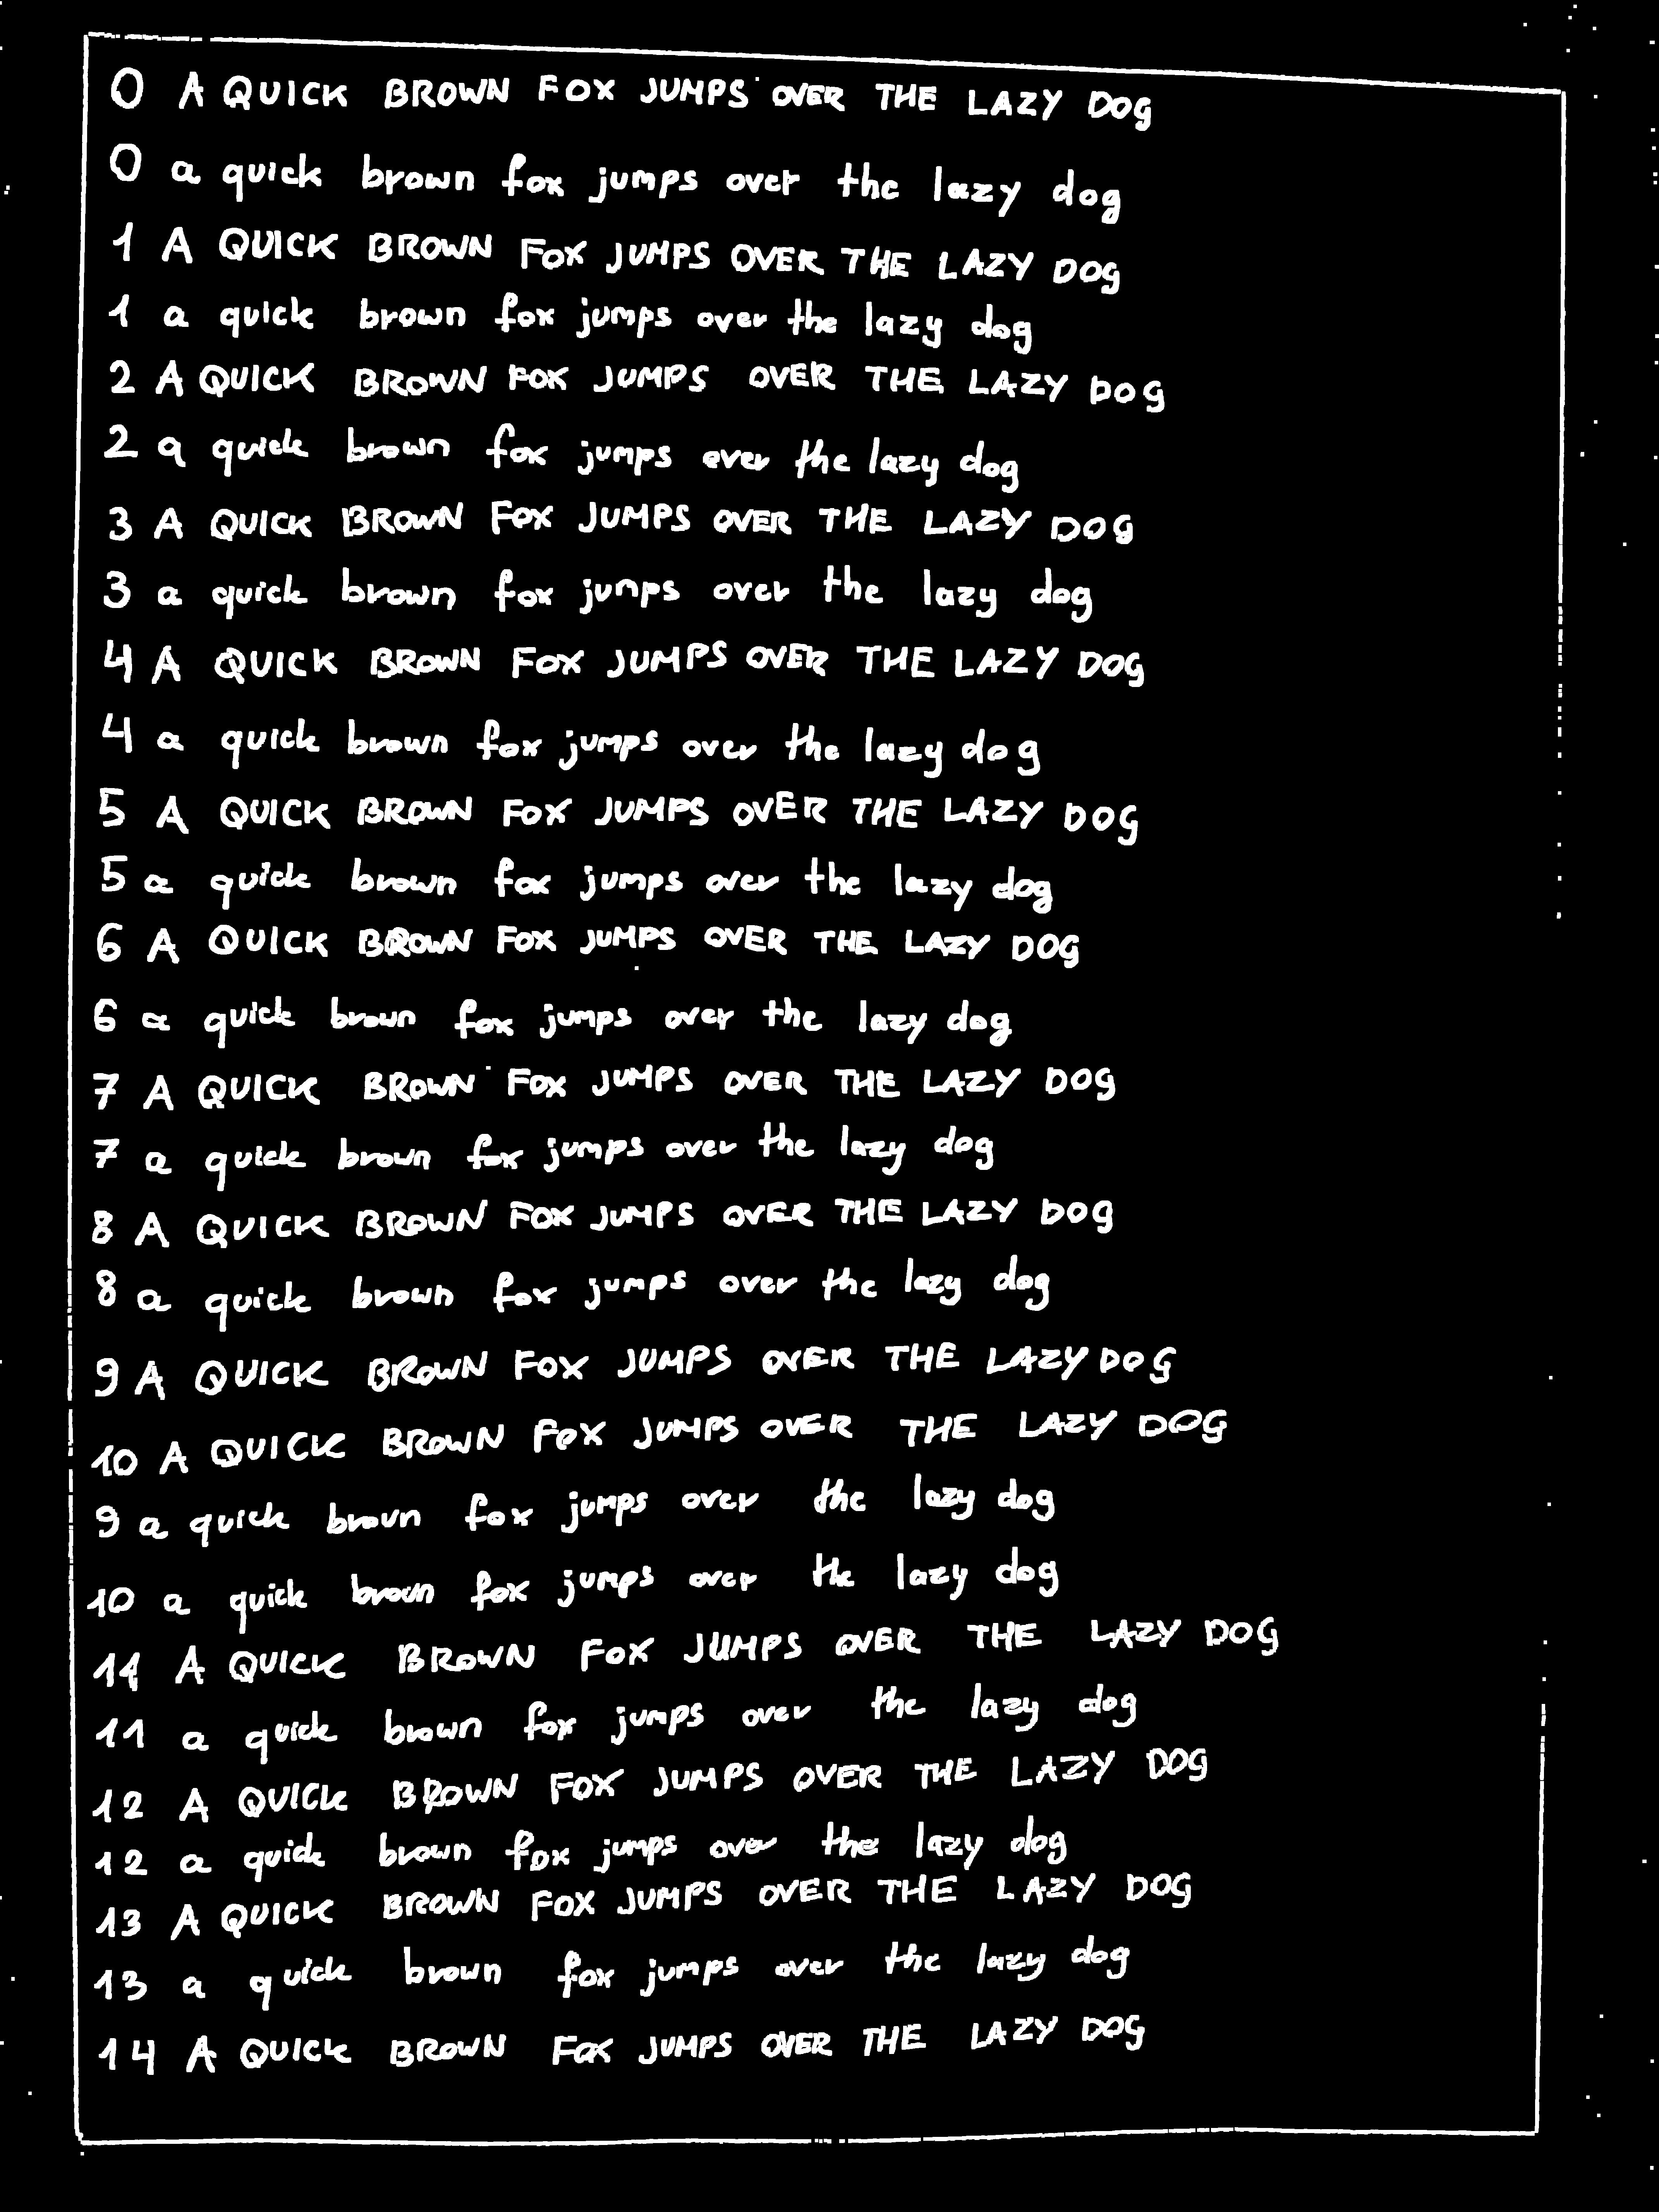 0 A QUICK BROWN FOX JUMPS OVER THE LAZY DOG
0 a quick brown fox jumps over the lazy dog
1 A QUICK BROWN FOX JUMPS OVER THE LAZY DOG
1 a quick brown fox jumps over the lazy dog
2 A QUICK BROWN FOX JUMPS OVER THE LAZY DOG
2 a quick brown fox jumps over the lazy dog
3 A QUICK BROWN FOX JUMPS OVER THE LAZY DOG
3 a quick brown fox jumps over the lazy dog
4 A QUICK BROWN FOX JUMPS OVER THE LAZY DOG
4 a quick brown fox jumps over the lazy dog
5 A QUICK BROWN FOX JUMPS OVER THE LAZY DOG
5 a quick brown fox jumps over the lazy dog
6 A QUICK BROWN FOX JUMPS OVER THE LAZY DOG
6 a quick brown fox jumps over the lazy dog
7 A QUICK BROWN FOX JUMPS OVER THE LAZY DOG
7 a quick brown fox jumps over the lazy dog
8 A QUICK BROWN FOX JUMPS OVER THE LAZY DOG
8 a quick brown fox jumps over the lazy dog
9 A QUICK BROWN FOX JUMPS OVER THE LAZY DOG
10 A QUICK BROWN FOX JUMPS OVER THE LAZY DOG
9 a quick brown fox jumps over the lazy dog
10 a quick brown fox jumps over the lazy dog
11 A QUICK BROWN FOX JUMPS OVER THE LAZY DOG
11 a quick brown fox jumps over the lazy dog
12 A QUICK BROWN FOX JUMPS OVER THE LAZY DOG
12 a quick brown fox jumps over the lazy dog
13 A QUICK BROWN FOX JUMPS OVER THE LAZY DOG
13 a quick brown fox jumps over the lazy dog
14 A QUICK BROWN FOX JUMPS OVER THE LAZY DOG